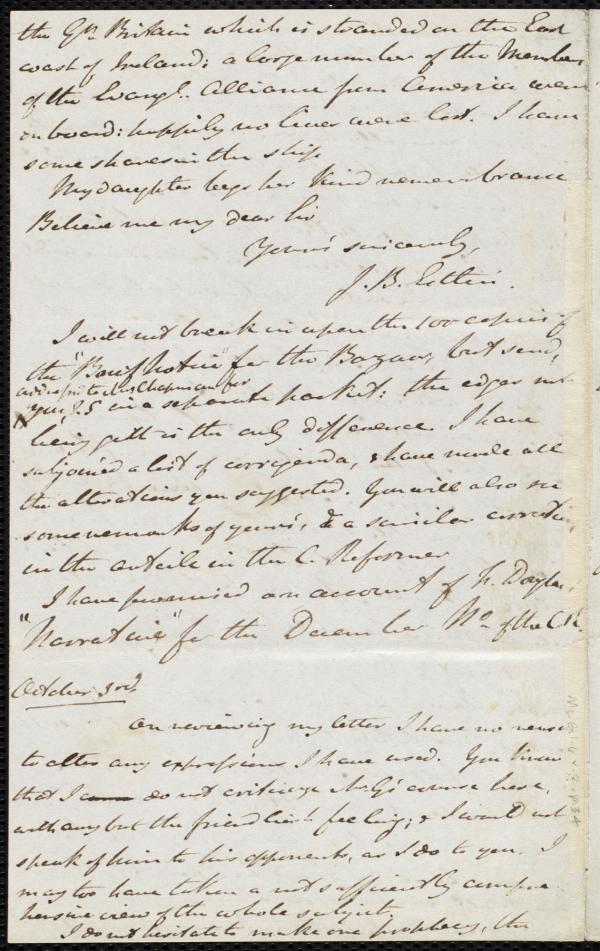 the Gt. Britain which is stranded on the East
coast of Ireland; a large number of the Members
of the Evangl. Alliance from America were
on board: happily no lives were lost. I have
some shares in the ship.
My daughter begs her kind remembrance
Believe me my dear Sir
Yours sincerely,
J. B. Estlin.
I will not break in upon the 100 copies of
the "Brief Notice" for the Bazaar, but send,
addressed to Mrs Chapman for
you, 25 in a separate packet: the edges not
being gilt is the only difference. I have
subjoined a list of corrigenda, & have made all
the alterations you suggested. You will also see
some remarks of yours, & a similar correction,
in the article in the C. Reformer
I have promised an account of F. Douglass'
"Narrative" for the December No. of the C.R.
October 3rd.
On reviewing my letter I have no reason
to alter any expressions I have used. You know
that I do not criticize Mr G's course here,
with any but the friendliest feeling; & I would not
speak of him to his opponents, as I do to you. I
may too have taken a not sufficiently compre-
hensive view of the whole subject.
I do not hesitate to make one prophecy, the